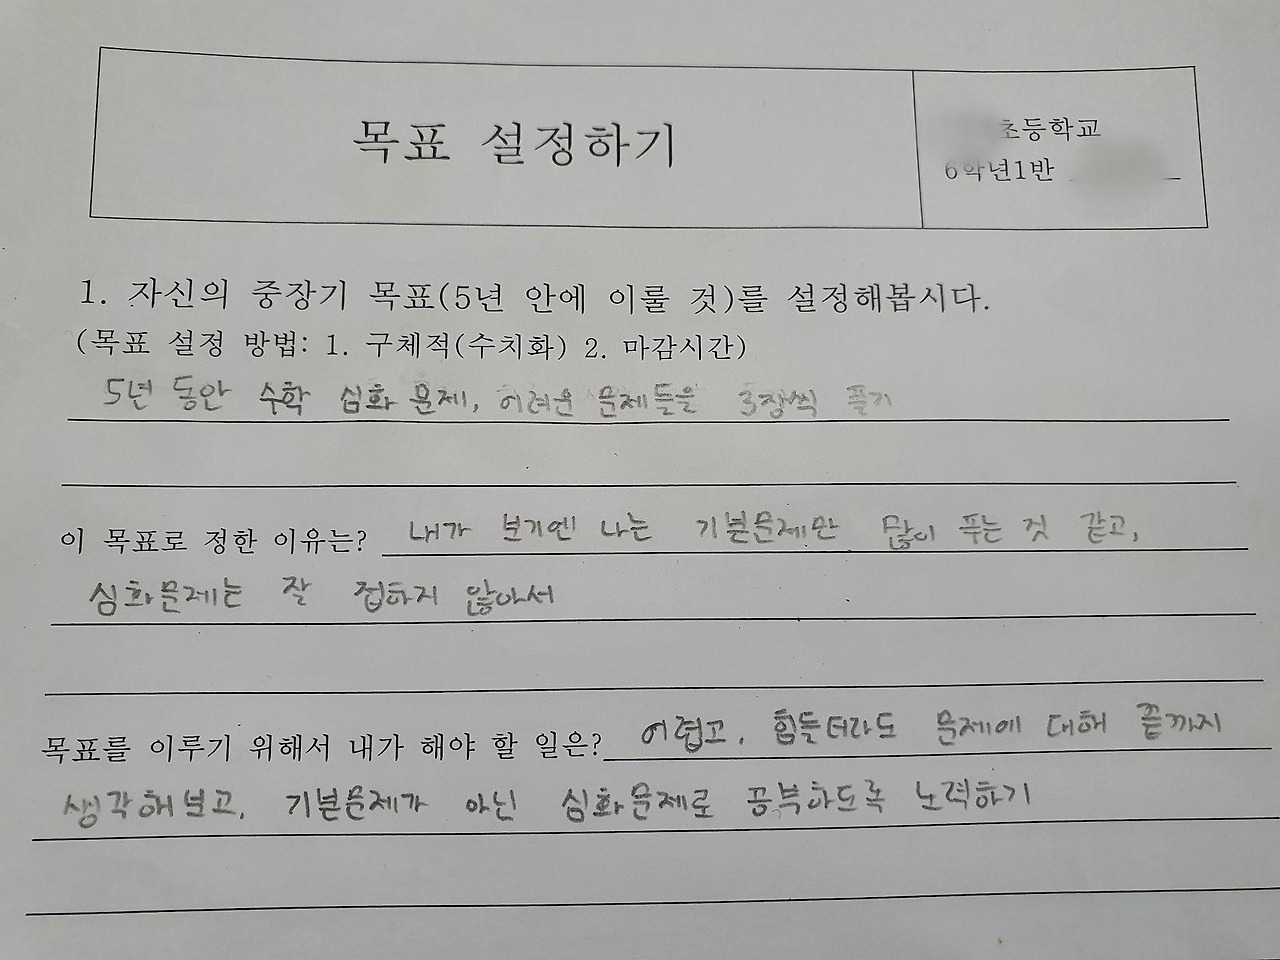 목표 설정하기
초등학교
6학년1반
1. 자신의 중장기 목표(5년 안에 이룰 것)를 설정해봅시다.
(목표 설정 방법: 1. 구체적(수치화) 2. 마감시간)
5년 동안 수학 심화 문제, 어려운 문제들을 3장씩 풀기
이 목표로 정한 이유는? 내가 보기엔 나는 기본문제만 많이 푸는 것 같고,
심화문제는 잘 접하지 않아서
목표를 이루기 위해서 내가 해야 할 일은? 어렵고, 힘들더라도 문제에 대해 끝까지
생각해보고, 기본문제가 아닌 심화문제로 공부하도록 노력하기